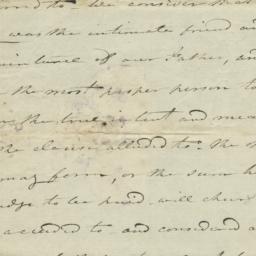 we consider that
was the intimate friend an
of our Father, and
the most proper person to
the true intent and mea
the clause alluded to. the
may form, or the sum he
udge to be paid will chee
acceded to and considered a